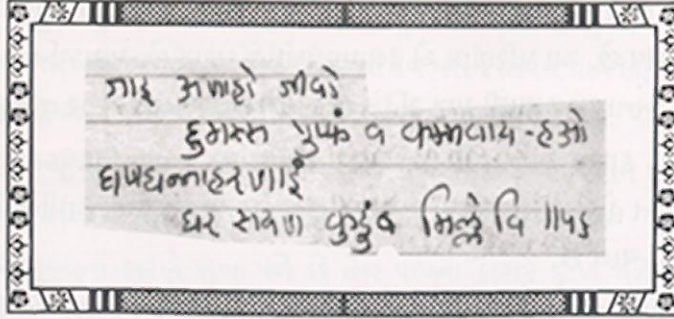 जाइ अणाहो जीवो
दुमस्स पुप्फं व कम्मवाय-हओ
धणधन्नाहरणाइं
घर सयण कुडुंब मिल्ले वि